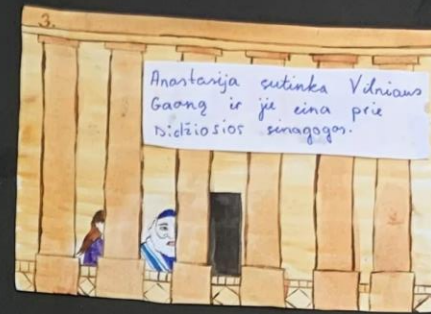 3.
Anastasija sutinka Vilniaus
Gaoną ir jie eina prie
Didžiosios sinagogos.